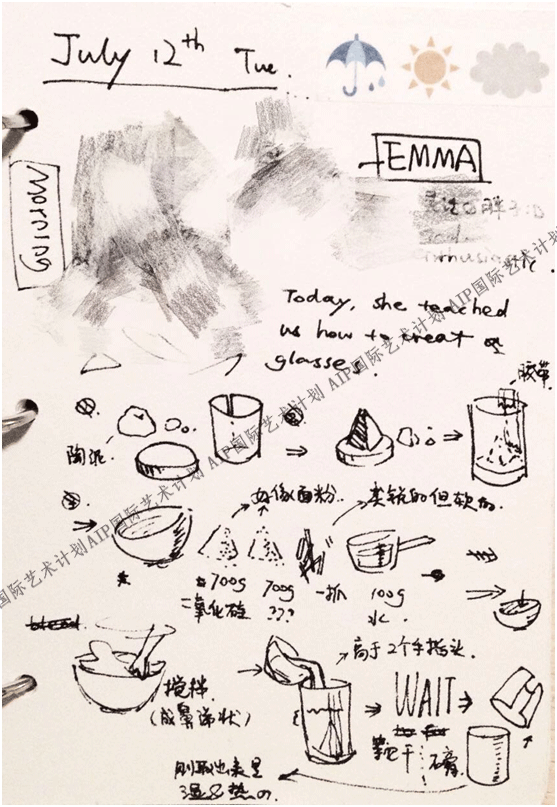 July 12th Tue.
Morning
EMMA
Today, she teached
us how to treat
glasses.
胶带
陶泥.
好像面粉.
类似的但软的.
700g 700g 一抓 100g
二氧化硅 ??? 水.
高于2个手指头.
搅拌.
(成鼻涕状)
WAIT
等它干 石膏
刚取出来是
湿&热的.
AIP国际艺术计划 AIP国际艺术计划 AIP国际艺术计划 AIP国际艺术计划